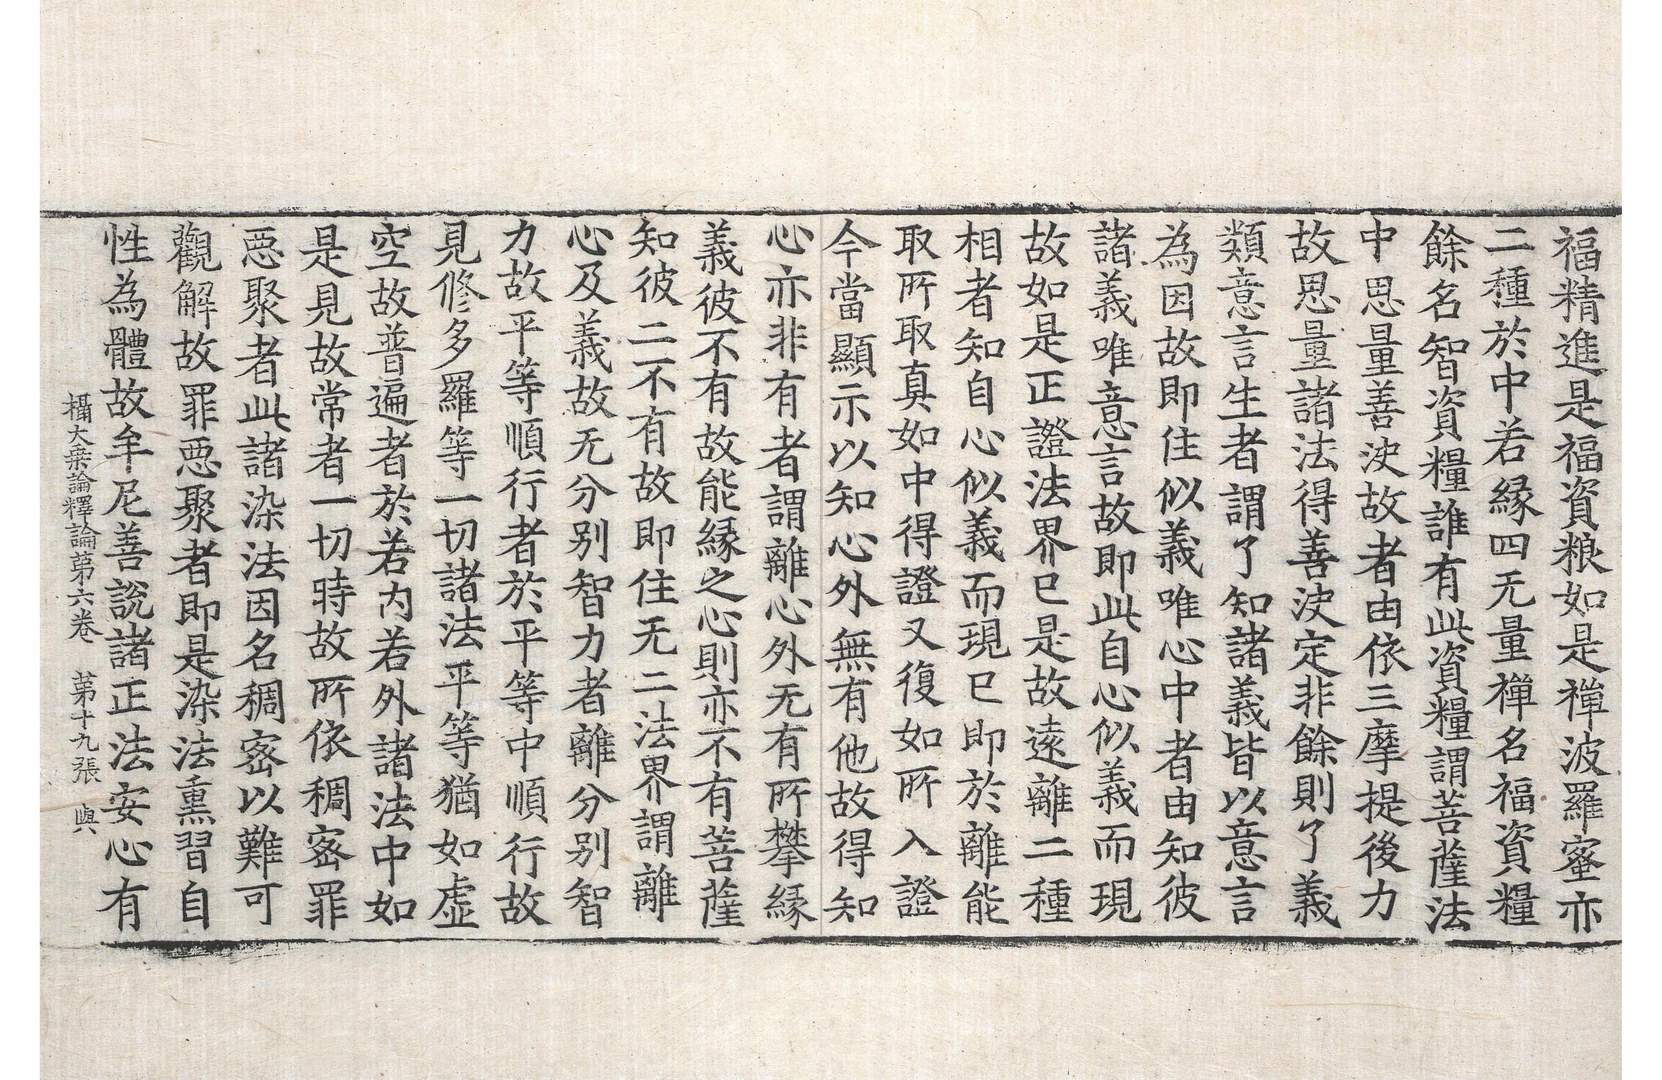 福精進是福資粮如是禪波羅蜜亦
二種於中若緣四无量禪名福資糧
餘名智資糧誰有此資糧謂菩薩法
中思量善決故者由依三摩提後力
故思量諸法得善決定非餘則了義
類意言生者謂了知諸義皆以意言
為因故即住似義唯心中者由知彼
諸義唯意言故即此自心似義而現
故如是正證法界已是故遠離二種
相者知自心似義而現已即於離能
取所取真如中得證又復如所入證
今當顯示以知心外無有他故得知
心亦非有者謂離心外无有所攀緣
義彼不有故能緣之心則亦不有菩薩
知彼二不有故即住无二法界謂離
心及義故无分別智力者離分別智
力故平等順行者於平等中順行故
見修多羅等一切諸法平等猶如虛
空故普遍者於若內若外諸法中如
是見故常者一切時故所依稠密罪
惡聚者此諸染法因名稠密以難可
觀解故罪惡聚者即是染法熏習自
性為體故牟尼善說諸正法安心有
攝大乘論釋論第六卷 第十九張 與